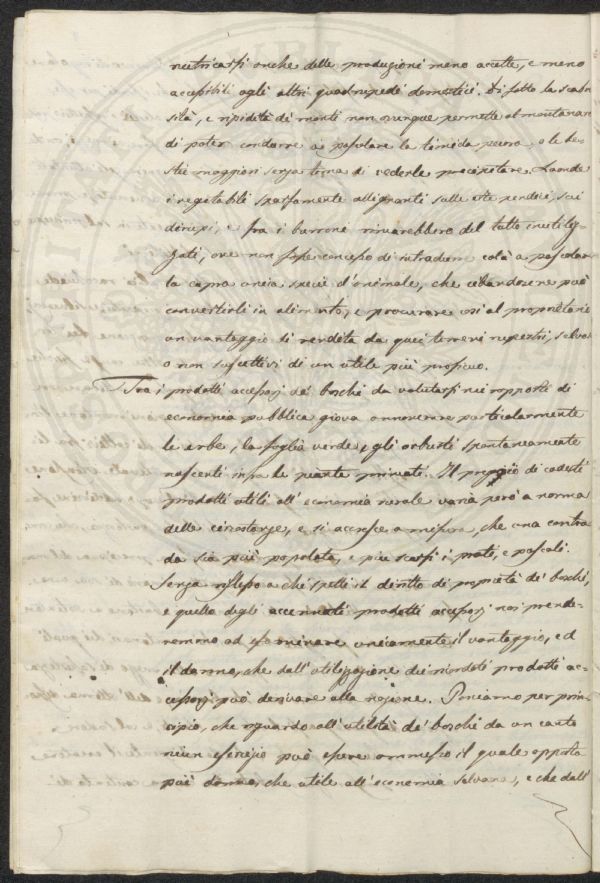 nutricarsi anche delle produzioni meno accette, e meno
accessibili agli altri quadrupedi domestici. Di fatto la scabro-
sità, e ripidità de' monti non ovunque permette al montanaro
di poter condurre a pascolare la timida pecora, o le be-
stie maggiori senza tema di vederle precipitare. Laonde
i vegetabili sparsamente allignanti sulle erte pendici, sui
dirupi, e fra i burroni rimarrebbero del tutto inutiliz-
zati, ove non fosse concesso di introdurre colà a pascolare
la capra unica specie d'animale, che cibandosene può
convertirli in alimento, e procurare così al proprietario
un vantaggio di rendita da quei terreni rupestri, selvosi
o non suscettivi di un utile più proficuo.
Tra i prodotti accessorj de' boschi da valutarsi nei rapporti di
economia pubblica giova annoverare particolarmente
le erbe, la foglia verde, e gli arbusti spontaneamente
nascenti infra le piante privati. Il pregio di codesti
prodotti utili all'economia rurale varia però a norma
delle circostanze, e si accresce a misura, che una contra-
da sia più popolata, e più scarsi i prati, e pascoli.
Senza riflesso a chi spetti il diritto di proprietà de' boschi,
e quello degli accennati prodotti accessorj noi prende-
remmo ad esaminare unicamente il vantaggio, ed
il danno, che dall'utilizzazione dei ricordati prodotti ac-
cessorj può derivare alla nazione. Poniamo per prin-
cipio, che riguardo all'utilità de' boschi da un canto
niun esercizio può essere ammesso il quale apporta
più danno, che utile all'economia selvana, e che dall'